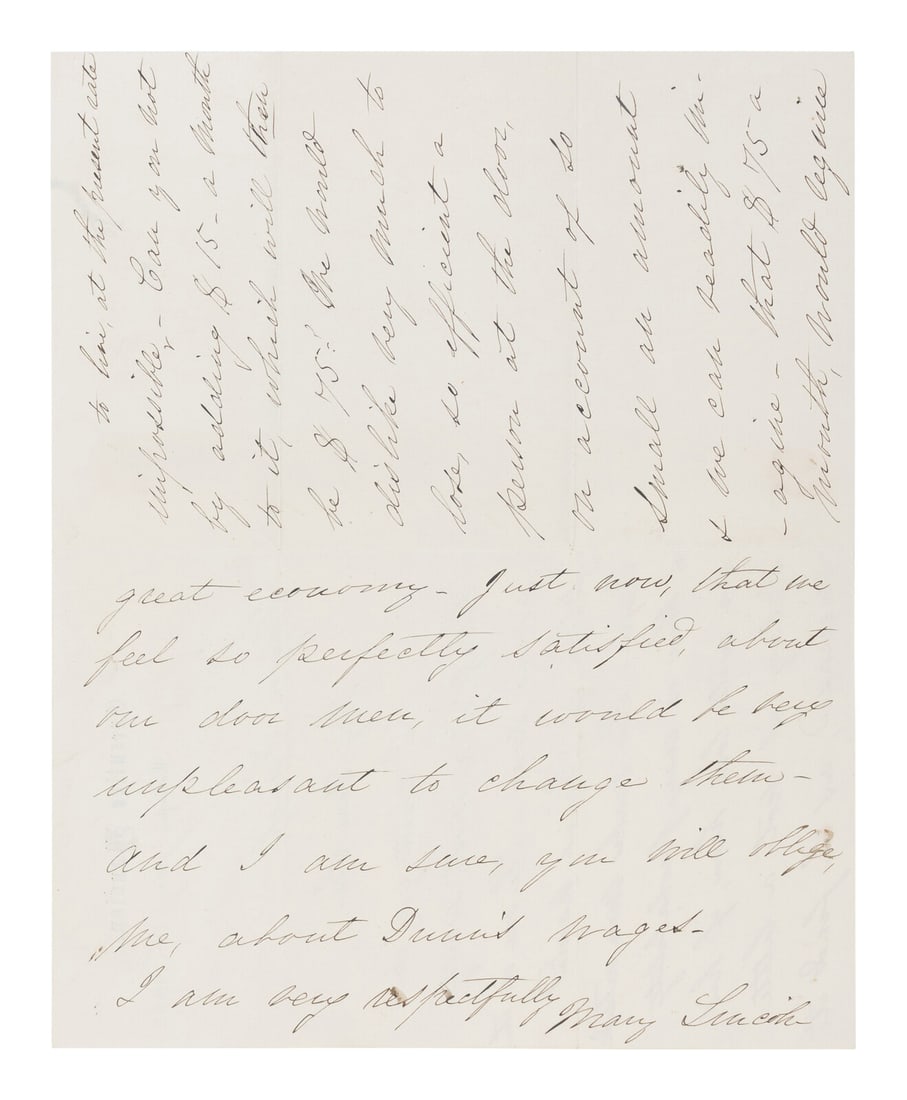 to live, at the present rate
impossible, - Can you not
by adding $15 - a month
to it, which will then
be $75? We would
dislike very much to
lose, so efficient a
person at the door,
on account of so
small an amount
& we can readily im-
- agine - that $75 - a
month, would require
great economy - Just now, that we
feel so perfectly satisfied, about
our door men, it would be very
unpleasant to change them -
And I am sure, you will oblige,
me, about Dunn's wages -
I am very respectfully
Mary Lincoln